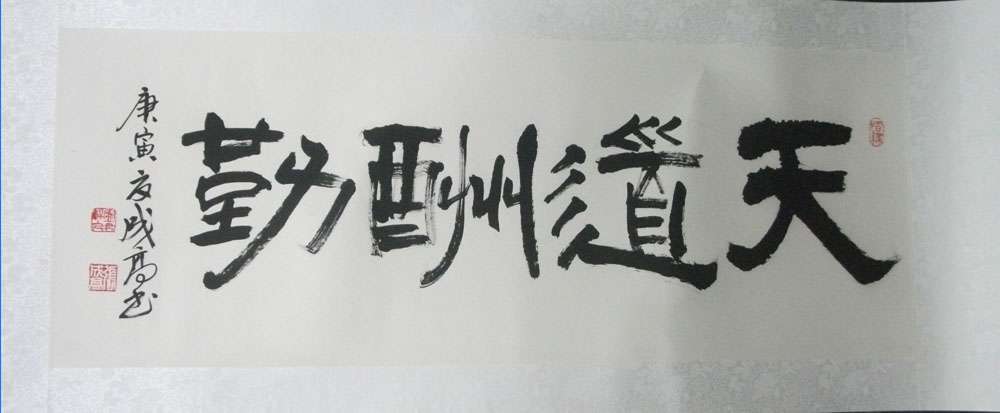 天道酬勤
庚寅夏成高书